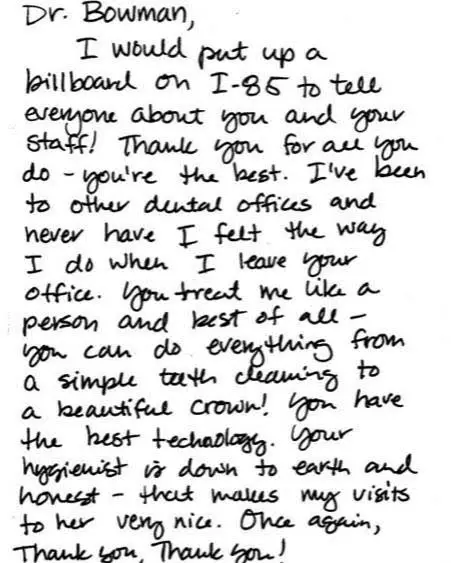 Dr. Bowman,
I would put up a
billboard on I-85 to tell
everyone about you and your
staff! Thank you for all you
do - you're the best. I've been
to other dental offices and
never have I felt the way
I do when I leave your
office. You treat me like a
person and best of all -
you can do everything from
a simple teeth cleaning to
a beautiful crown! You have
the best technology. Your
hygienist is down to earth and
honest - that makes my visits
to her very nice. Once again,
Thank you, Thank you!